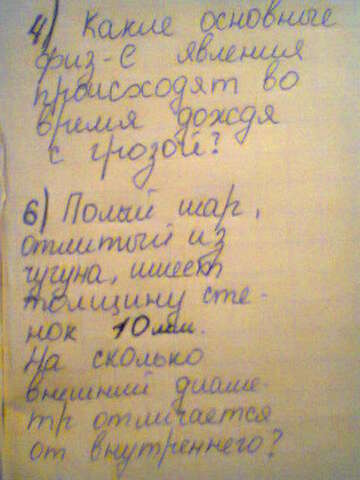 4) Какие основные
физ-е явления
происходят во
время дождя
с грозой?
6) Полый шар,
отлитый из
чугуна, имеет
толщину сте-
нок 10мм.
На сколько
внешний диаме-
тр отличается
от внутреннего?